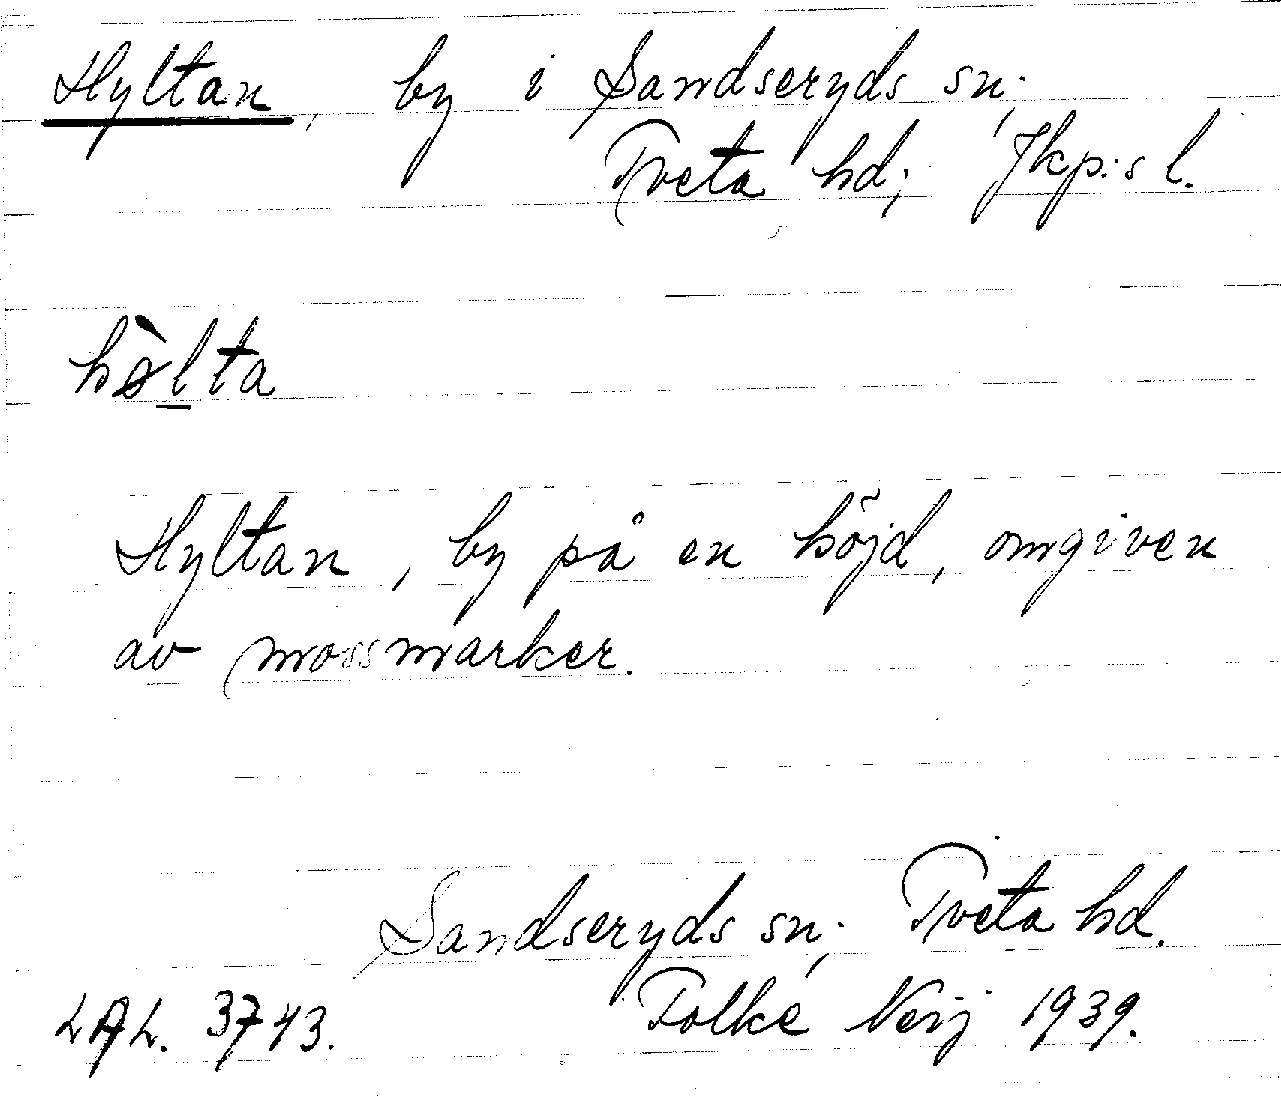 Hyltan, by i Sandseryds sn;
Tveta hd; Jkp:s l.
hø̀l̲ta
Hyltan, by på en höjd, omgiven
av mossmarker.
Sandseryds sn; Tveta hd.
LAL. 3743. Folke Neij 1939.